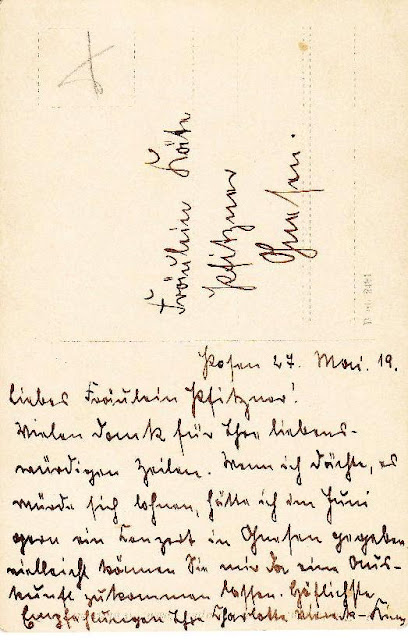 Fräulein Käte
Pfitzner
Gnesen.
Posen 27. Mai. 19.
Liebes Fräulein Pfitzner!
Vielen dank für Ihre liebens-
würdigen Zeilen. Wenn ich dächte, es
würde sich lohnen, hätte ich im Juni
gern ein Konzert in Gnesen gegeben.
vielleicht können Sie mir da eine Aus-
kunft zukommen lassen. Höflichste
Empfehlungen Ihre Charlotte